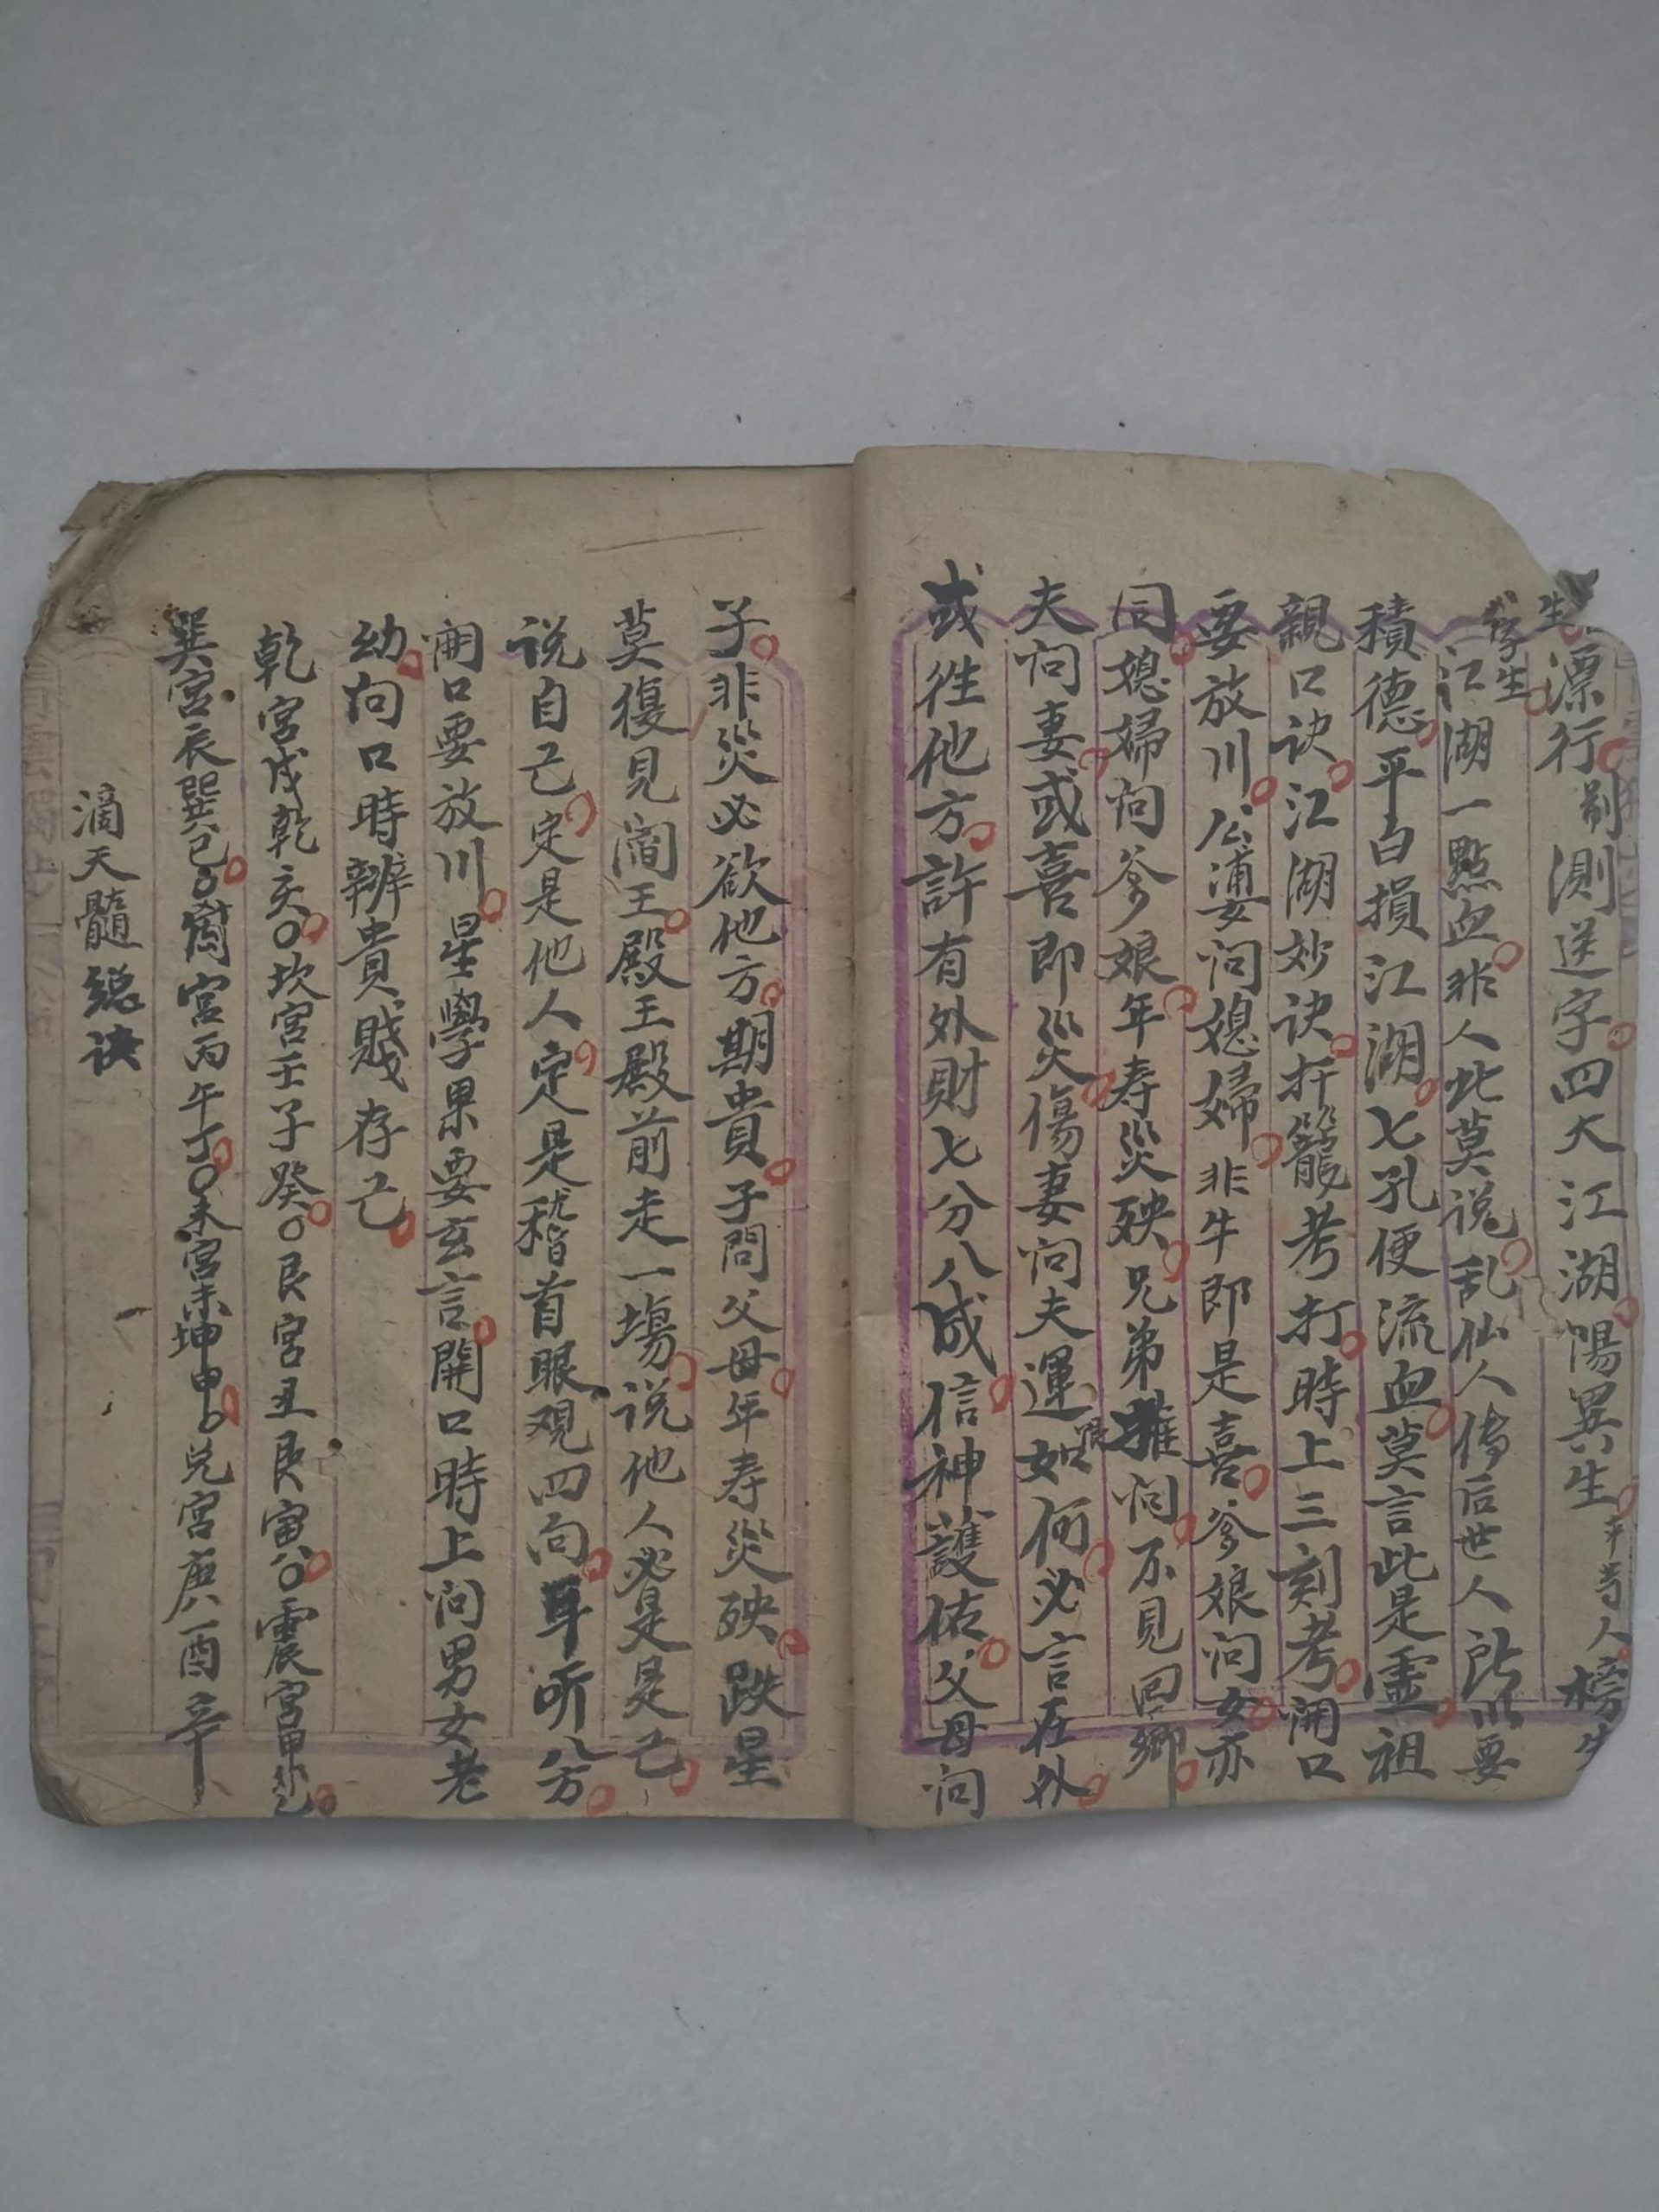 生
漂行剐測送字四大江湖陽異生平等人榜生
字生
江湖一點血非人此莫说乱仙人传后世人所以要
積德平白損江湖七孔便流血莫言此是靈祖
親口诀江湖妙诀扦籠考打時上三刻考開口
要放川公婆问媳婦非牛即是喜爹娘问女亦
同媳婦问爹娘年寿災殃兄弟雁问不見回鄉
夫问妻或喜即災傷妻问夫運如何必言在外
或往他方許有外財七分八成信神護佑父母问
子非災必欲他方期貴子問父母年寿災殃跌星
莫復見閻王殿王殿前走一塲说他人必是是己
说自己定是他人定是稽首眼观四向耳听八方
開口要放川星學果要玄言開口時上问男女老
幼向口時辨貴賤存己
乾宮戌乾亥坎宮壬子癸艮宮丑艮寅震宮甲卯乙
巽宮辰巽巳離宮丙午丁未宮未坤申兑宮庚酉辛
滴天髓總诀